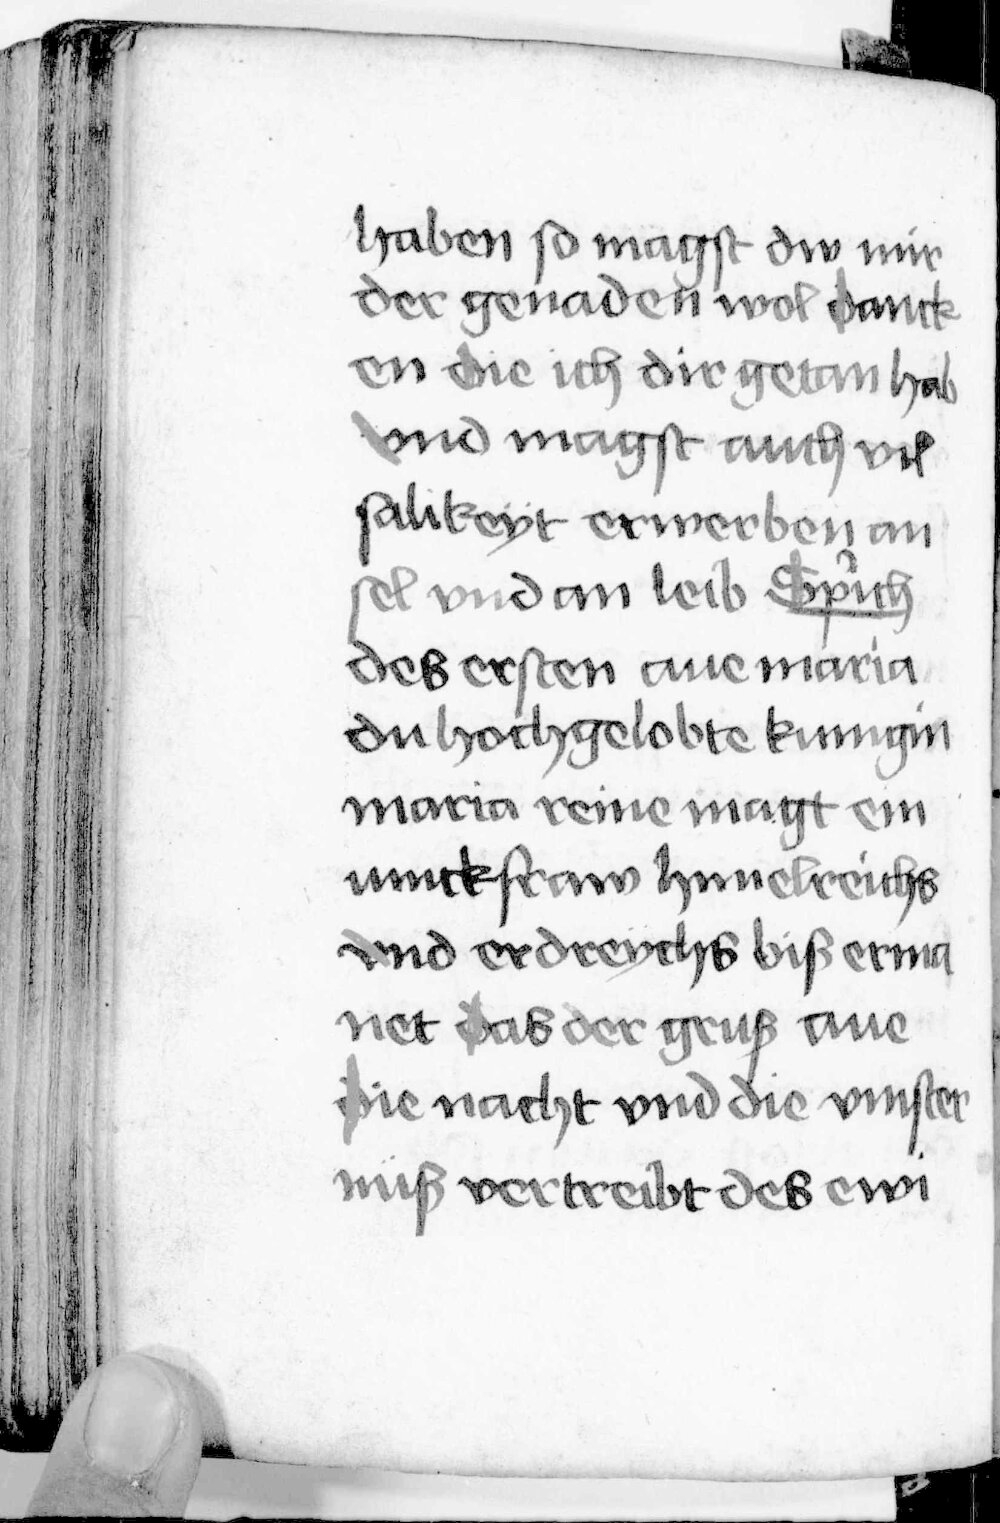 haben so magst dw mir
der genaden wol danck
en die ich dir getan hab
vnd magst auch vil
salikeyt erwerben an
sel vnd an leib Sprich
des ersten aue maria
du hochgelobte kunigin
maria reine magt ein
iunckfraw himelreichs
vnd erdreychs biß erma
net das der gruß aue
die nacht vnd die vinster
niß vertreibt des ewi